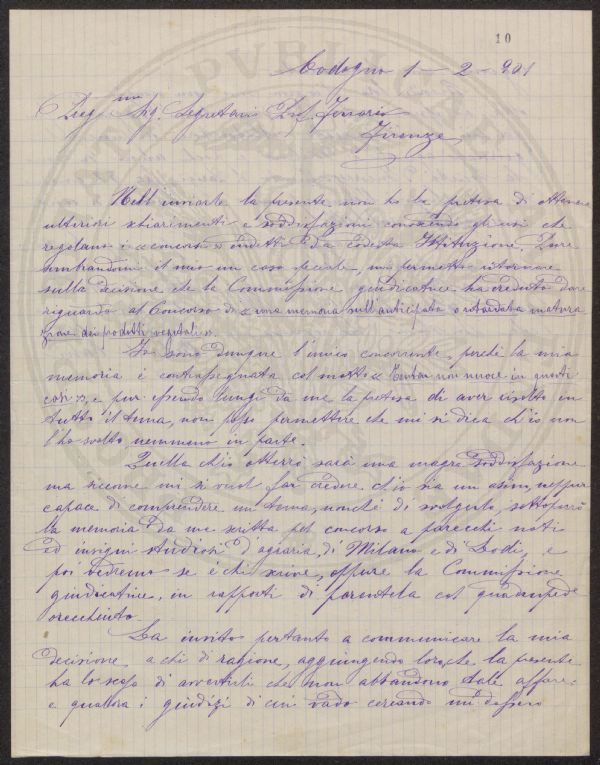 10
Codogno 1 - 2 - 901
Preg.mo Sig. Segretario Prof. Ferrari
Firenze
Nell'inviarle la presente non ho la pretesa di ottenere
ulteriori schiarimenti e soddisfazioni conoscendo gli usi che
regolano i concorsi indetti da codesta Istituzione. Pure
sembrandomi il mio un caso speciale, mi permetto ritornare
sulla decisione che la Commissione giudicatrice ha creduto dare
riguardo al Concorso di « una memoria sull'anticipata o ritardata matura
zione dei prodotti vegetali ».
Io sono dunque l'unico concorrente, perchè la mia
memoria è contrassegnata col motto « Tentar non nuoce in questi
casi », e pur essendo lungi da me la pretesa di aver svolto in
tutto il tema, non posso permettere che mi si dica ch'io non
l'ho svolto nemmeno in parte.
Quella ch'io otterrò sarà una magra soddisfazione
ma siccome mi si vuol far credere ch'io sia un asino, neppur
capace di comprendere un tema, nonchè di svolgerlo, sottoporrò
la memoria da me scritta pel concorso a parecchi noti
ed insigni studiosi d'agraria, di Milano e di Lodi, e
poi vedremo se è chi scrive, oppure la Commissione
giudicatrice, in rapporti di parentela col quadrupede
orecchiuto.
La invito pertanto a comunicare la mia
decisione a chi di ragione, aggiungendo loro che la presente
ha lo scopo di avvertirli che non abbandono tale affare:
e qualora i giudizi di cui vado cercando mi dessero